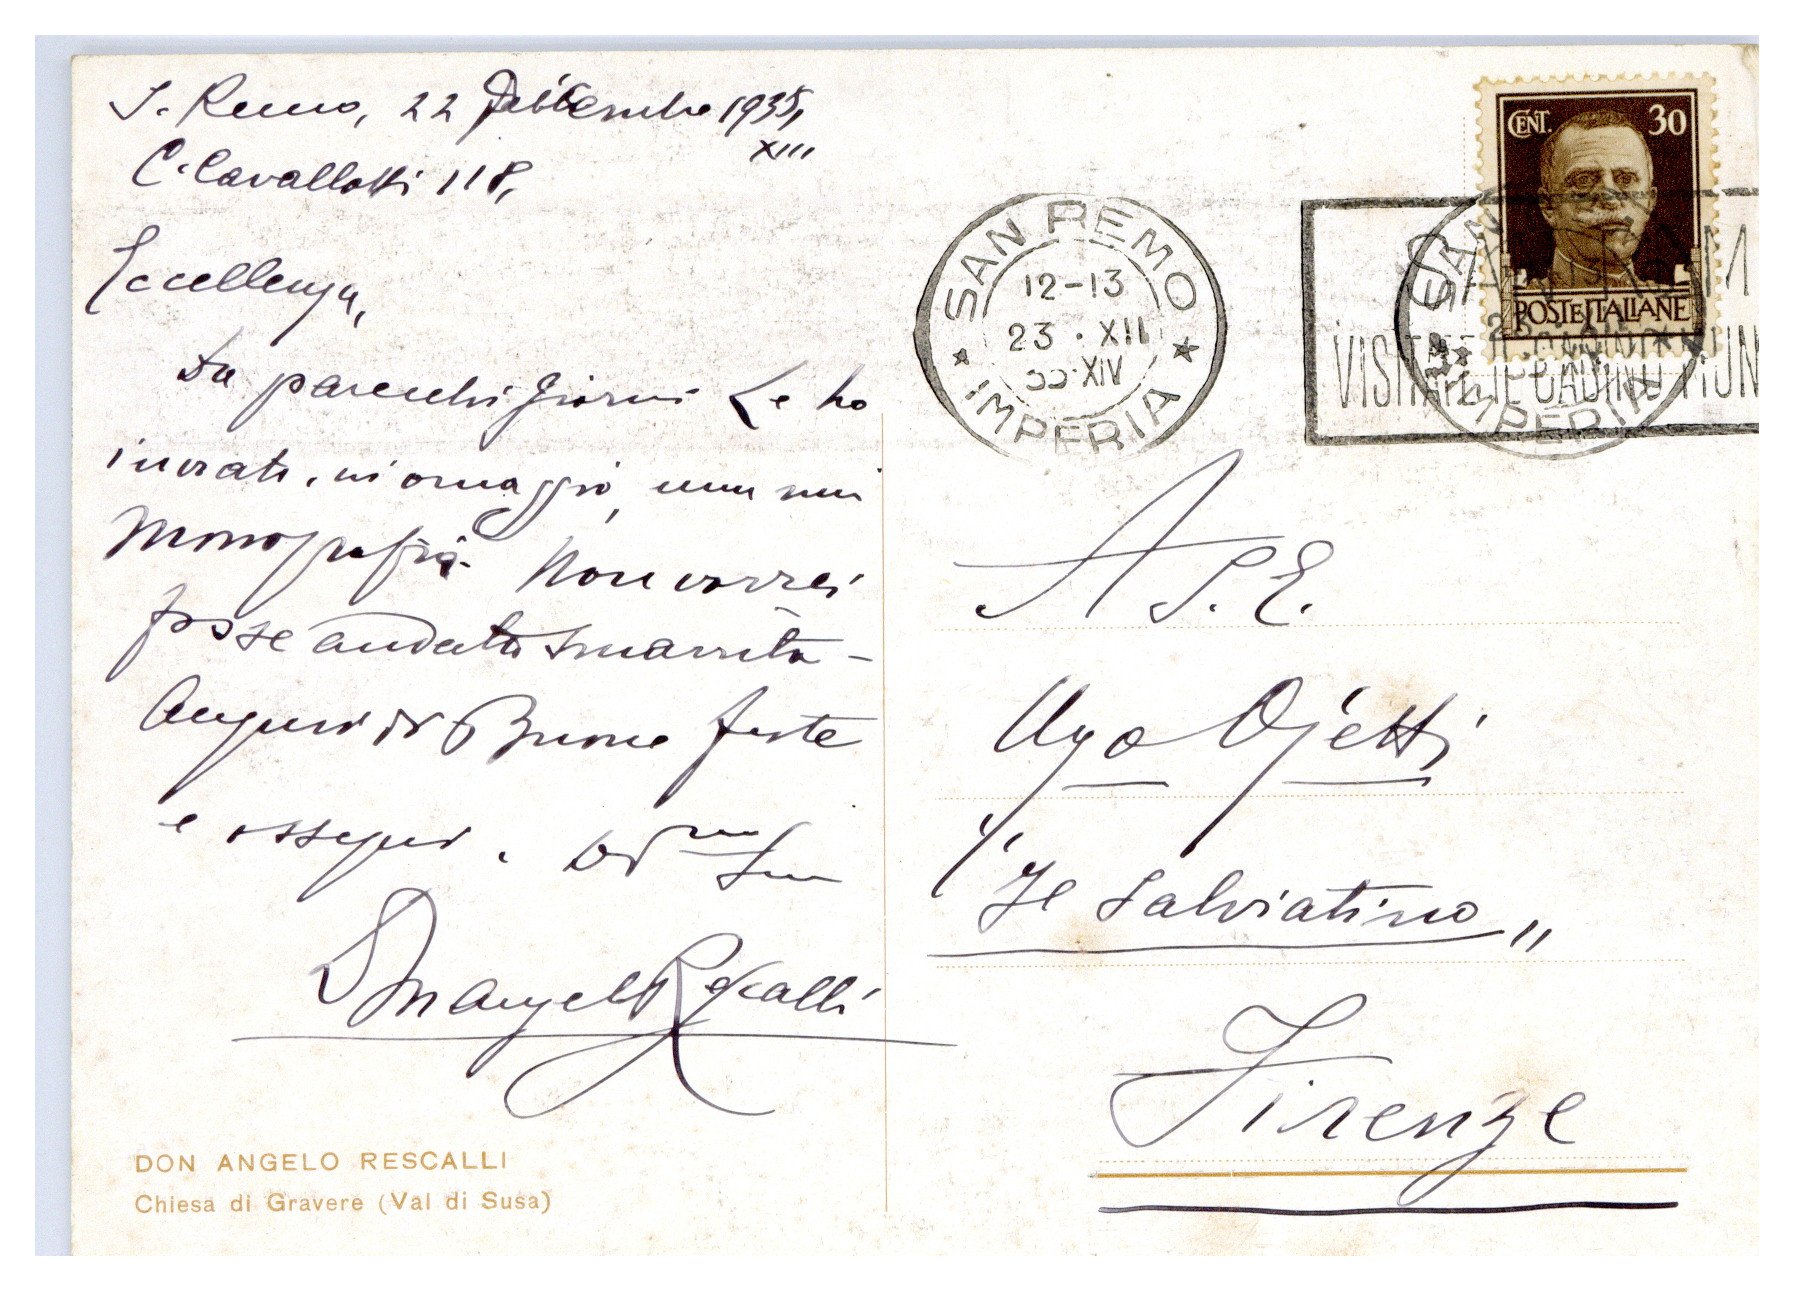 S. Remo, 22 Dicembre 1935,
XIII
C. Cavallotti 118,
Eccellenza,
Da parecchi giorni Le ho
inviato, in omaggio, una mia
Monografia. Non vorrei
fosse andata smarrita -
Auguri di Buone feste
e ossequi. Dev.mo
Don Angelo Rescalli
DON ANGELO RESCALLI
Chiesa di Gravere (Val di Susa)
CENT. 30
POSTE ITALIANE
SAN REMO
12-13
23 · XII
35·XIV
IMPERIA
VISITATE IL CASINO MUN
A S. E.
Ugo Ojetti
"Il Salviatino"
Firenze